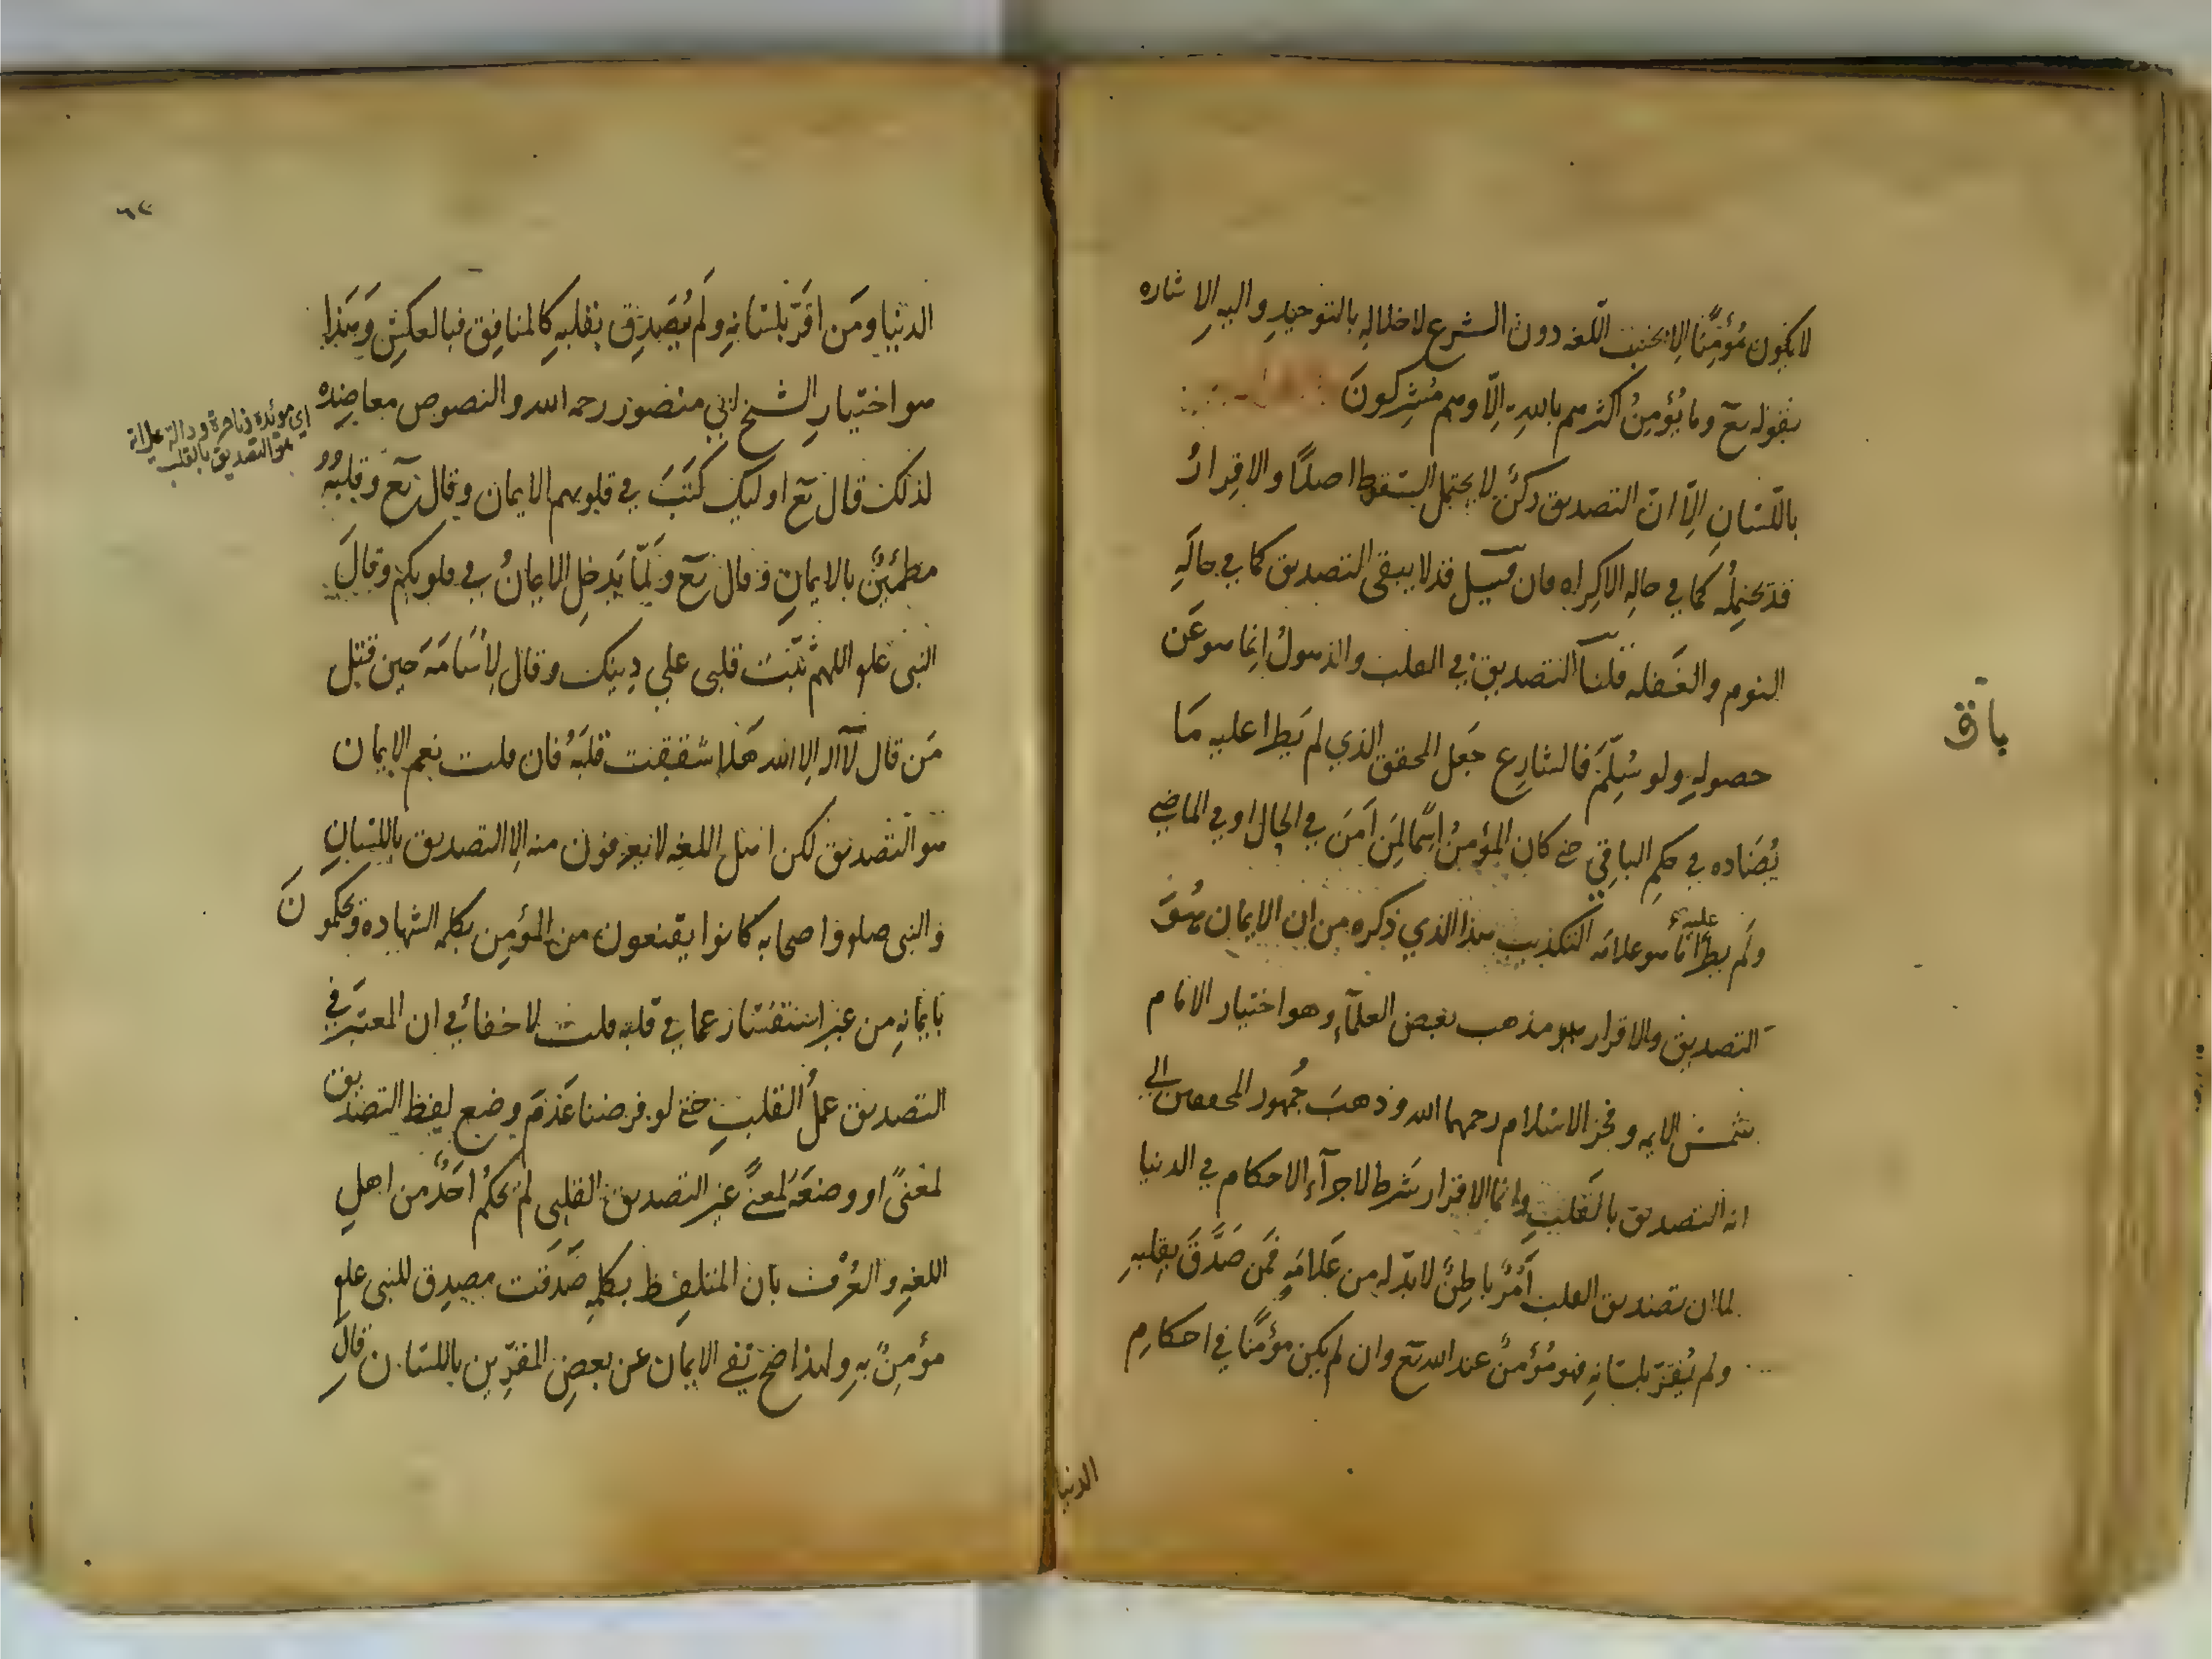 لا يكون مُؤمِنًا الا بحسب اللّغه دون الشرع لاخلاله بالتوحيدِ واليه الاشاره
بقوله تع وما يُؤمِنُ اكثرهم باللهِ الِاّ وهم مُشرِكونَ
باللّسَانِ الِاّ انّ التصديق ركنٌ لا يحتمل السّقوط اصلًا والاقِرارُ
قد يحتمِلُه كما في حاله الاكِراه فان قيل قد لا يبقى التصديق كما في حالَهِ
النوم والغَفله قلنا التصديق في القلب والذهولُ انِما هو عَن
حصولهِ ولو سُلِّمَ فالشارِع جَعل المحقق الذي لم يَطرا عليه مَا
يُضَاده في حكمِ الباقِي حتى كان المؤمِنُ اسمًا لمِن اَمَنَ في الحال او في الماضي
ولَم يطرَا عليهِ مَا هو علامَه التكذيب هذا الذي ذكره من ان الايمان هُوَ
التصديق والاقرار هو مذهب بعض العلمآء وهو اختيار الامام
شمسِ الايمه وفخر الاسلام رحمهما الله وذهبَ جُمهور المحققين الي
انه التصديق بالقَلبِ وانما الاقرار شَرط لاجرآءِ الاحكام في الدنيا
لما ان تصديق القلب اَمرٌ باطِنٌ لا بدّ له من عَلامَهٍ فمَن صَدَّقَ بقِلبهِ
ولم يُقِرّ بلسَانهِ فهو مُؤمنٌ عند الله تع وان لم يكن مؤمنًا في احكامِ
الدنيا
باق
٦٢
الدنيا ومَن اقَرّ بلسَانهِ ولَم يُصَدِّق بقلبهِ كالمنافِق فبالعكسِ وَهَذا
هو اختيارِ الشيخ ابي منصور رحمه الله والنصوص معاضِده
اي مويّدة وناصرة ودالة علي انه
هو التصديق بالقلب
لذلك قال تع اوليك كَتَبَ في قلوبهم الايمان وقال تع وقلبُهُ
مطمئِنٌّ بالايمانِ وقال تع ولَمّا يَدخلِ الايمانُ في قلوبكم وقالَ
النبى علم اللهمّ ثبّت قلبى على دِينك وقال لِاُسَامَهَ حِين قتل
مَن قال لآ اله الا الله هَلا شققت قلبَهُ فان قلت نعم الايمان
هو التصديق لكن اهل اللغه لا يعرفون منه الا التصديق باللسَانِ
والنبى صلم واصحابه كانوا يقنعون من المؤمِن بكلمه الشهاده ويحكمونَ
بايمانِهِ من غير استفسَار عما في قلبه قلت لا خفا في ان المعتبَر في
التصديق عملُ القلبِ حتى لو فرضنا عَدَم وضع لفظ التصديق
لمعنًى او وضعَهُ لمعنًى غير التصديق القلبى لم يحكمُ اَحَدٌ من اهلِ
اللغهِ والعُرف بان المتلفِظ بكلمهِ صَدّقت مصِدق للنبى علم
مؤمِنٌ بهِ ولهذا صَح نفي الايمان عن بعضِ المقرّين باللسَان قال